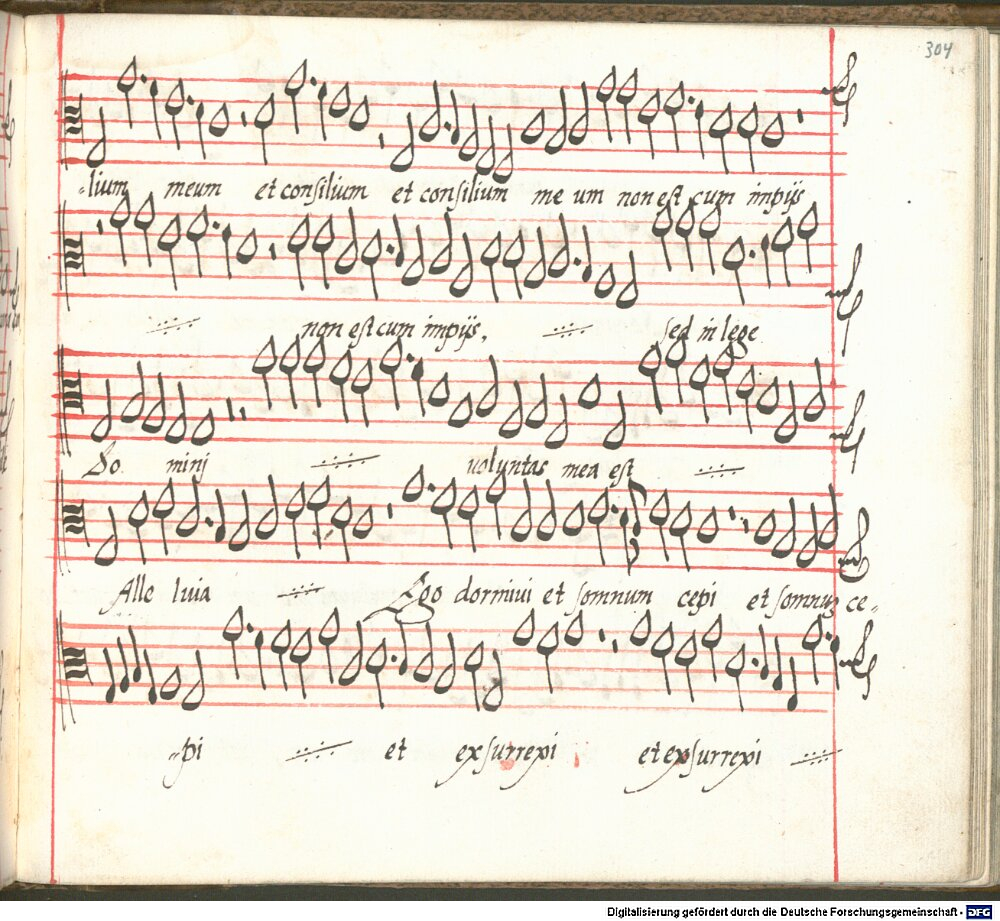 304
-lium meum et consilium et consilium me um non est cum impijs
non est cum impijs, sed in lege
Do minj voluntas mea est
Alle luia Ego dormivi et somnum cepi et somnuz ce-
-pi et exsurrexi et exsurrexi
Digitalisierung gefördert durch die Deutsche Forschungsgemeinschaft - DFG